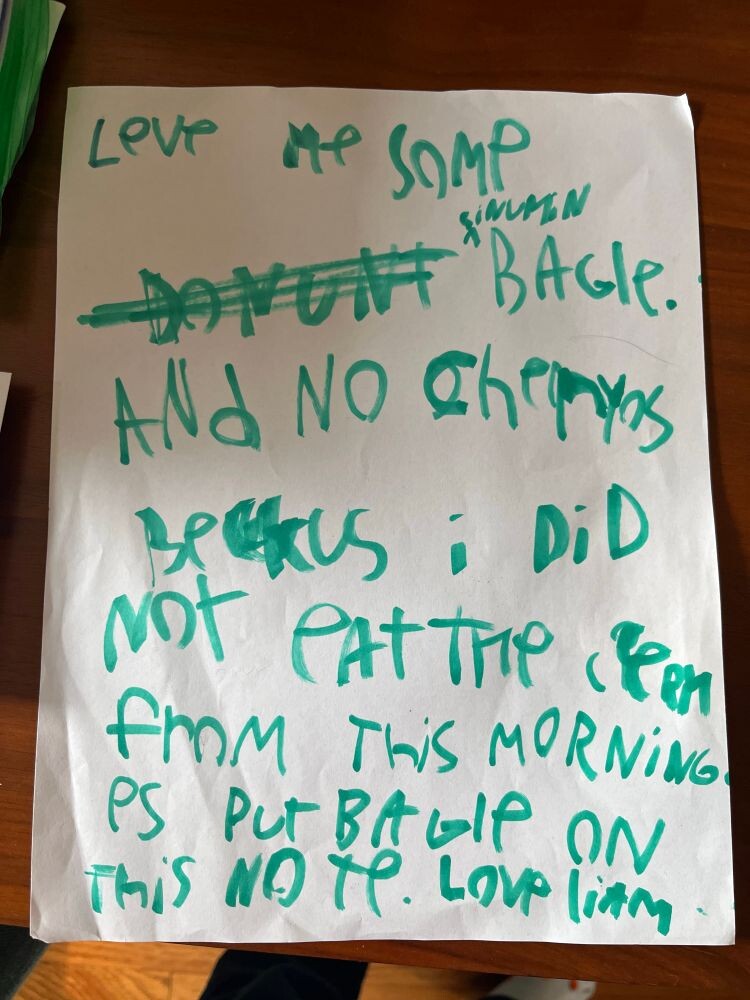 Leve Me SOMe
SiNUMIN
DONUNT BAGle.
ANd NO
i DiD
NOt eAt THe
fROM THiS MORNiNG.
PS PUt BAGle ON
THiS NOTe. LOVe liAM